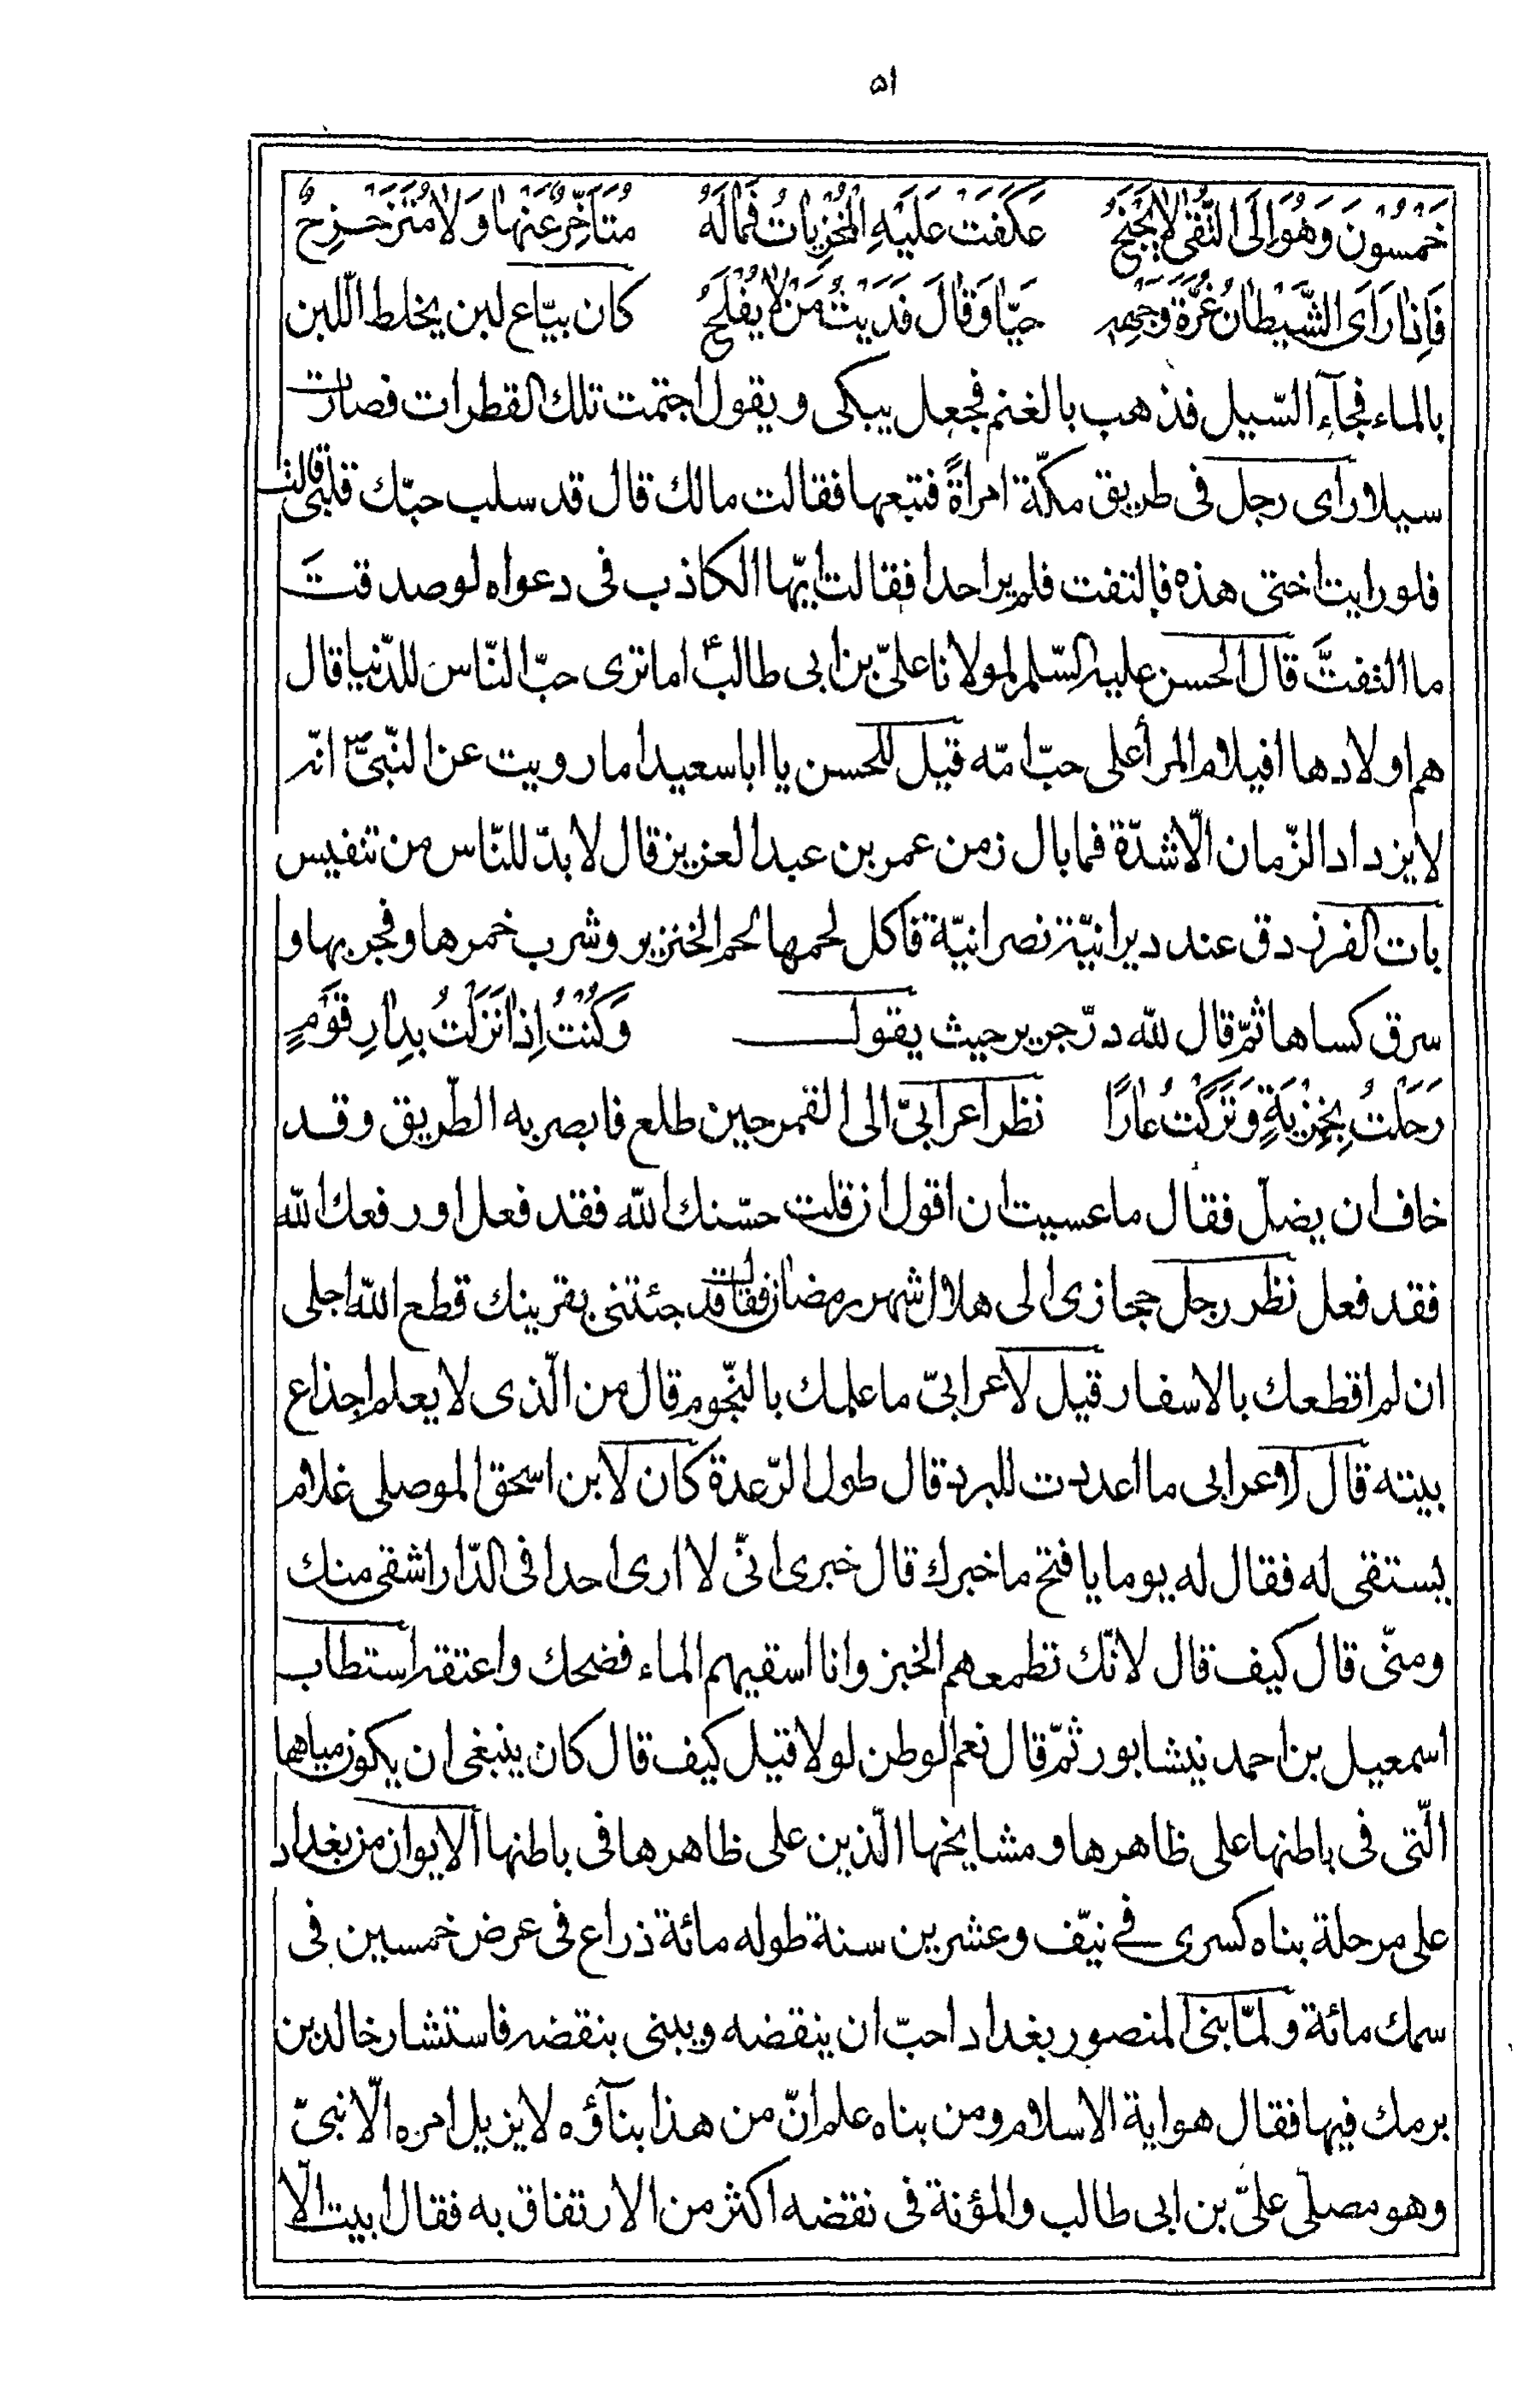 ٥١
خَمْسُونَ وَهُوَ اِلَى التُّقٰى لٰا يَجْنَحُ عَكَفَتْ عَلَيْهِ الْمُخْزِيٰاتُ فَمٰا لَهُ مُتَأَخِّرٌ عَنْهٰا وَ لٰا مُتَزَحْزِحُ
فَاِذٰا رَاَى الشَّيْطٰانُ غُرَّةَ وَجْهِهِ حَيّٰا وَ قٰالَ فَدَيْتُ مَنْ لٰا يُفْلِحُ كان بيّاع لبن يخلط اللّبن
بالماء فجآء السّيل فذهب بالغنم فجعل يبكى و يقول اجتمعت تلك القطرات فصارت
سيلا راى رجل فى طريق مكّة امراةً فتبعها فقالت مالك قال قد سلب حبّك قلبى قالت
فلو رايت اختى هذه فالتفت فلم ير احدا فقالت ايّها الكاذب فى دعواه لو صدقتَ
ما التفتَّ قال الحسن عليه السّلم لمولانا علىّ بن ابى طالبؑ اما ترى حبّ النّاس للدّنيا قال
هم اولادها افيلام المرأ على حبّ امّه قيل للحسن يا ابا سعيد اما رويت عن النّبىّؐ انّه
لا يزداد الزّمان الّا شدّة فما بال زمن عمر بن عبد العزيز قال لا بدّ للنّاس من تنفيس
بات الفرزدق عند ديرانيّة نصرانيّة فاكل لحمها لحم الخنزير و شرب خمرها و فجر بها و
سرق كساها ثمّ قال للّه درّ جرير حيث يقول وَ كُنْتُ اِذٰا نَزَلْتُ بِدٰارِ قَوْمٍ
رَحَلْتُ بِخِزْيَةٍ وَ تَرَكْتُ عٰارًا نظر اعرابىّ الى القمر حين طلع فابصر به الطّريق و قد
خاف ان يضلّ فقال ما عسيت ان اقول ان قلت حسّنك اللّه فقد فعل او رفعك اللّه
فقد فعل نظر رجل حجازى الى هلال شهر رمضان فقال قد جئتنى بقرينك قطع اللّه اجلى
ان لم اقطعك بالاسفار قيل لاعرابىّ ما علمك بالنّجوم قال من الّذى لا يعلم اجذاع
بيته قال لاعرابى ما اعددت للبرد قال طول الرّعدة كان لابن اسحق الموصلى غلام
يستقى له فقال له يوما يا فتح ما خبرك قال خبرى انّى لا ارى احدا فى الدّار اشقى منك
و منّى قال كيف قال لانّك تطمعهم الخبز و انا اسقيهم الماء فضحك و اعتقه استطاب
اسمعيل بن احمد نيشابور ثمّ قال نعم الوطن لولا قيل كيف قال كان ينبغى ان يكون مياهها
الّتى فى باطنها على ظاهرها و مشايخها الّذين على ظاهرها فى باطنها الايوان من بغداد
على مرحلة بناه كسرى فى نيّف و عشرين سنة طوله مائة ذراع فى عرض خمسين فى
سمك مائة و لمّا بنى المنصور بغداد احبّ ان ينقضه و يبنى بنقضه فاستشار خالد بن
برمك فيها فقال هو اية الاسلام و من بناه علم انّ من هذا بنآؤه لا يزيل امره الّا نبىّ
و هو مصلّى علىّ بن ابى طالب و المؤنة فى نقضه اكثر من الارتفاق به فقال ابيت الّا